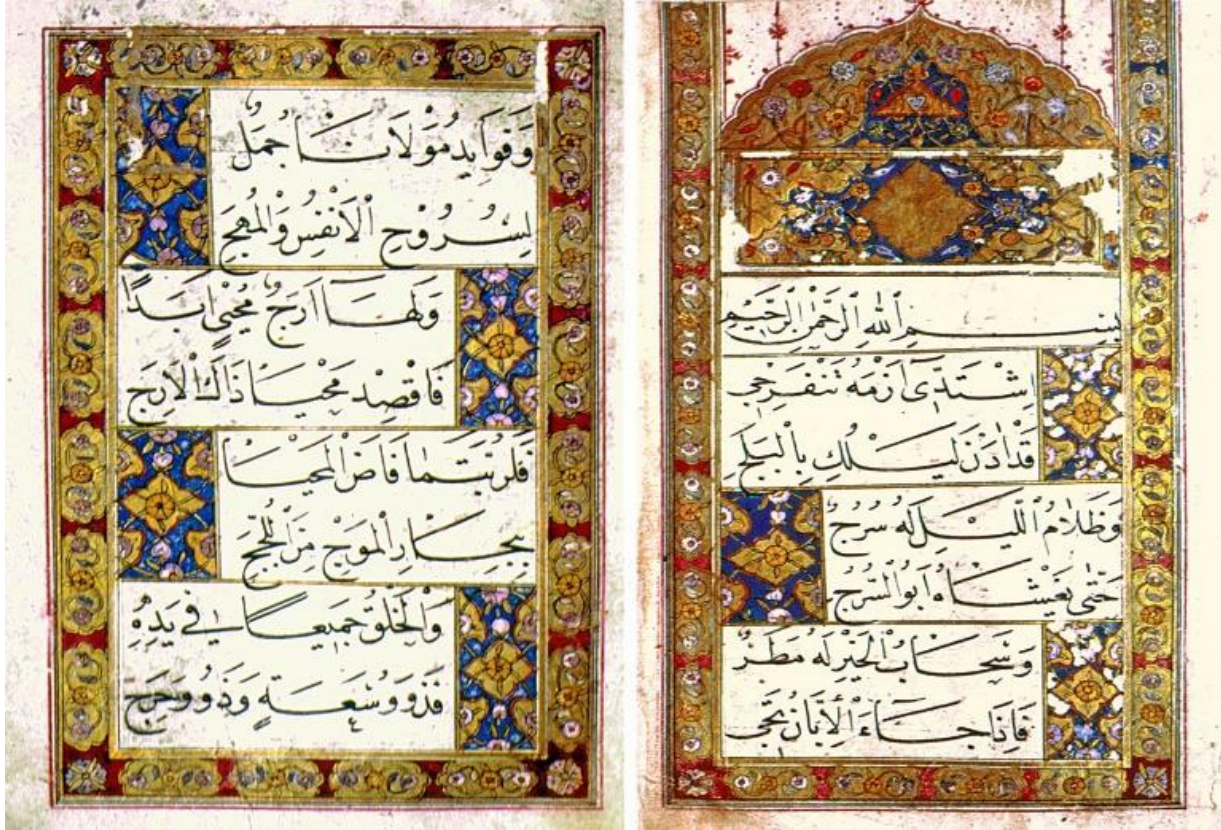 بِسْمِ ٱللهِ ٱلرَّحْمٰنِ ٱلرَّحِيْمِ
اِشْتَدِّىْ اَزْمَةُ تَنْفَرِجِىْ
قَدْ اٰذَنَ لَيْلُكِ بِالْبَلَجِ
وَظَلَامُ اللَّيْلِ لَهُ سُرُجٌ
حَتّٰى يَغْشَاهُ اَبُو السُّرُجِ
وَسَحَابُ الْخَيْرِ لَهُ مَطَرٌ
فَاِذَا جَاءَ الْاِبَّانُ تَجِى
وَفَوَايِدُ مَوْلَانَا جُمَلٌ
لِسُرُوْحِ الْاَنْفُسِ وَالْمُهَجِ
وَلَهَا اَرَجٌ مُحْيِىْ اَبَدًا
فَاقْصِدْ مَحْيَا ذَاكَ الْاَرِجِ
فَلَرُبَّتَمَا فَاضَ الْمَحْيَا
بِبِحَارِ الْمَوْجِ مِنَ اللُّجَجِ
وَالْخَلْقُ جَمِيْعًا فِيْ يَدِهِ
فَذَوُو سَعَةٍ وَذَوُو حَرَجِ